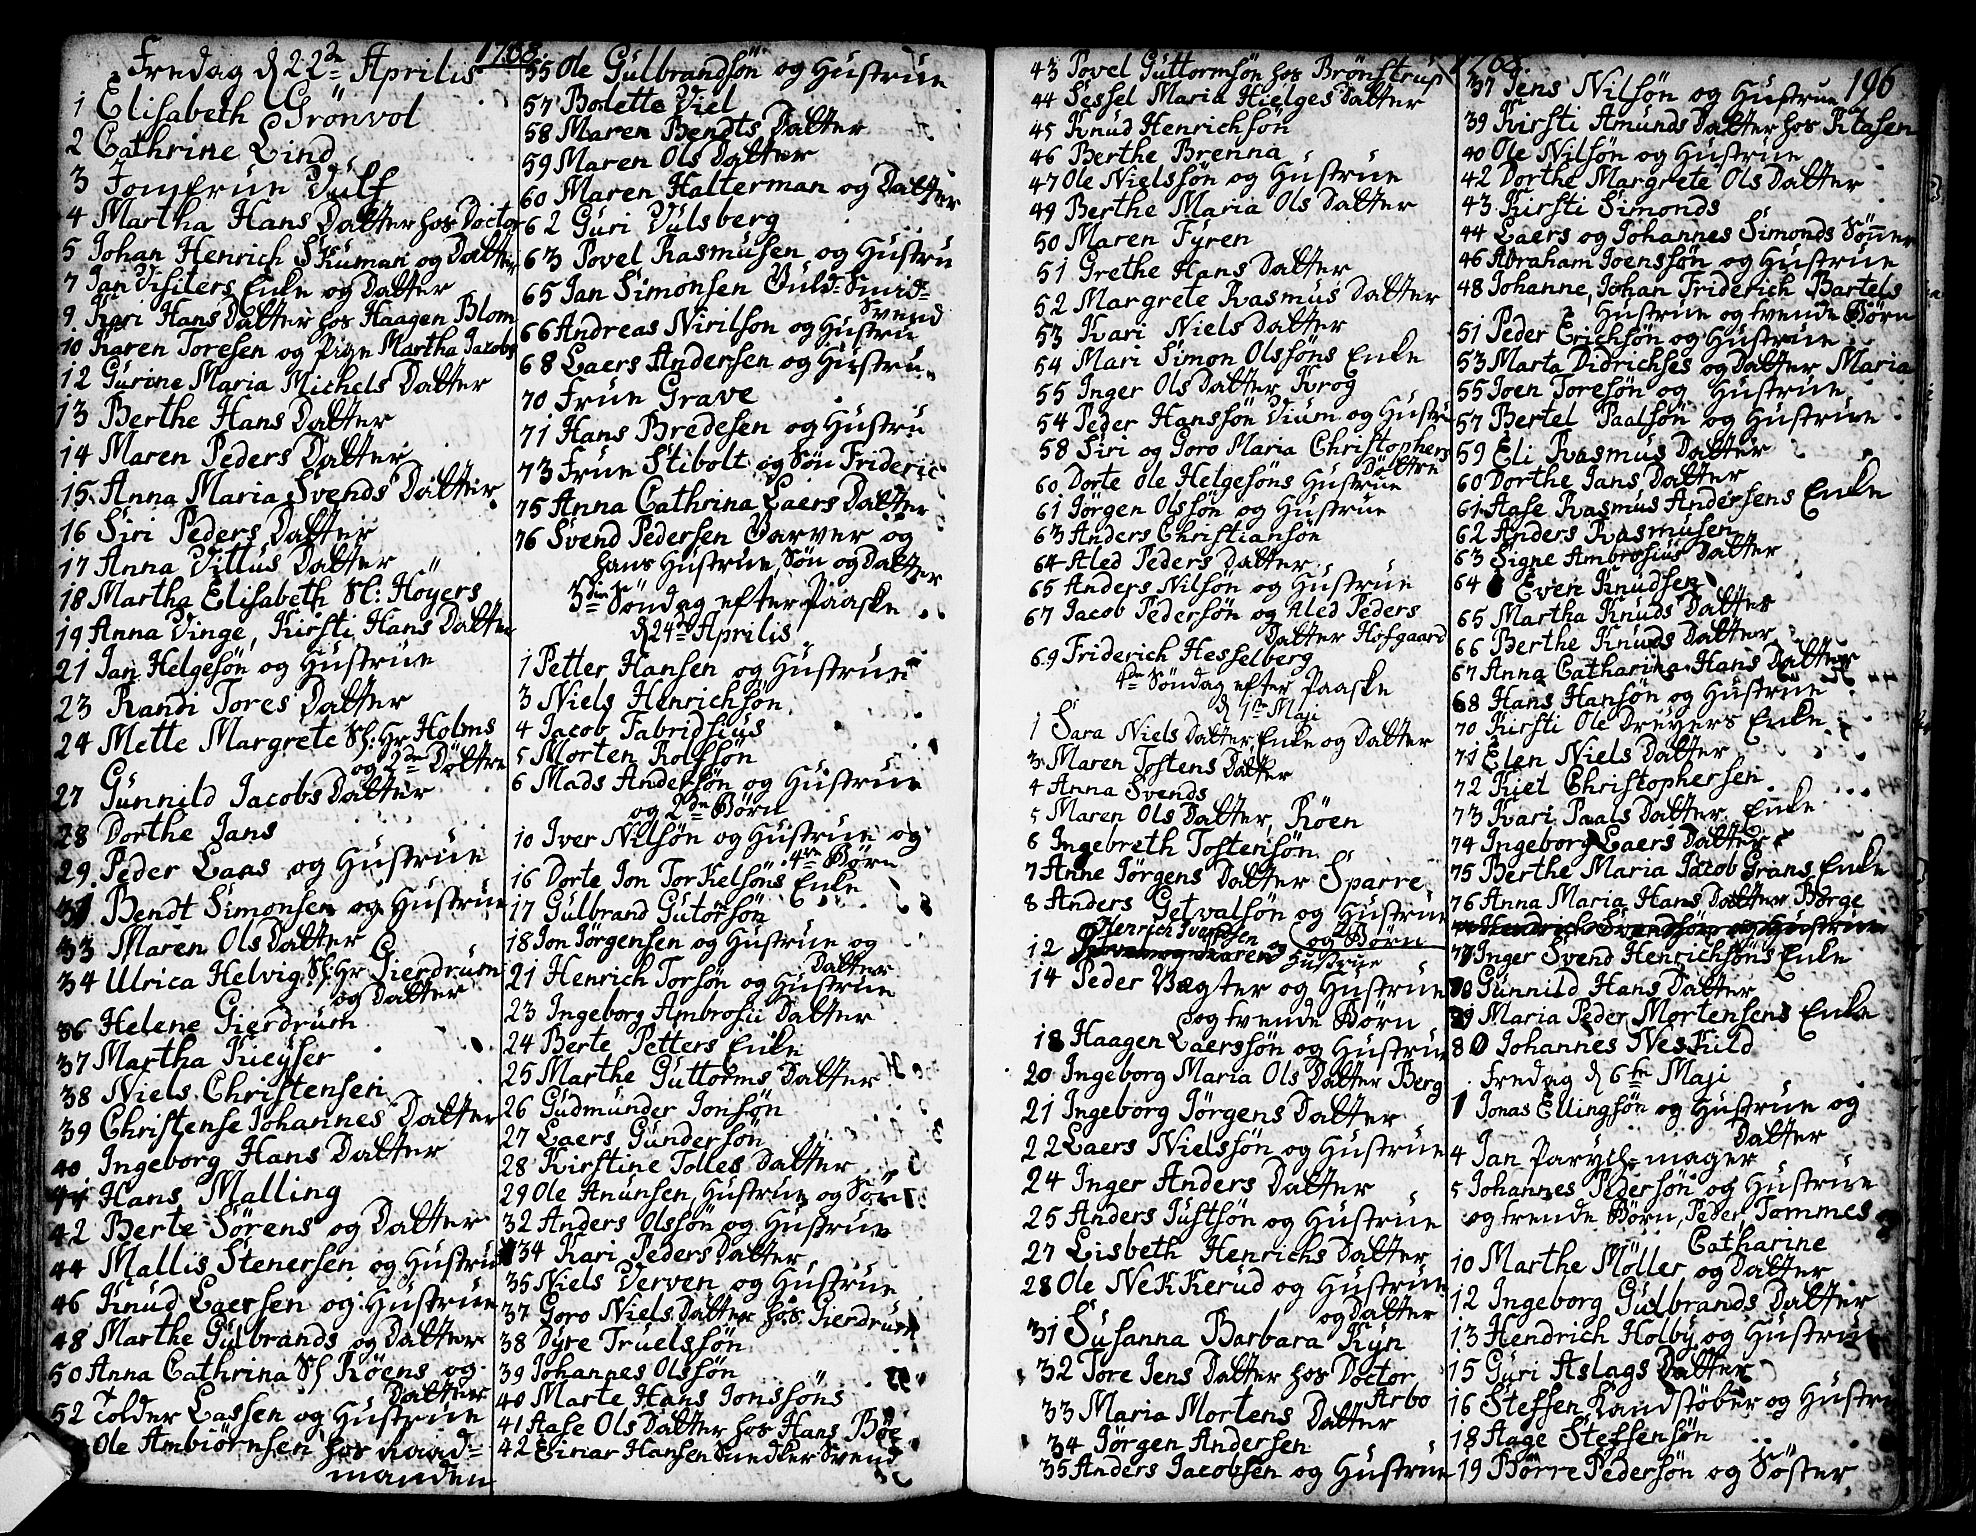 1768.
Fredag d 22de Aprilis
1 Elisabeth Grönvol
2 Cathrine Lind
3 Jomfrue Vulf
4 Martha Hans Datter hos Doctor
5 Johan Henrich Skuman og Datter
7 Jan Visiters Enke og Datter
9 Kari Hans Datter hos Haagen Blom
10 Karen Toresen og Pige Martha Jacobs
12 Gurine Maria Michels Datter
13 Berthe Hans Datter
14 Maren Peders Datter
15 Anna Maria Svends Datter
16 Siri Peders Datter
17 Anna Vittus Datter
18 Martha Elisabeth Sl: Höyers
19 Anna Vinge, Kirsti Hans Datter
21 Jan Helgesön og Hustrue
23 Randi Tores Datter
24 Mette Margrete Sl: Hr Holms
og 2de Döttre
27 Gunnild Jacobs Datter
28 Dorthe Jans
29 Peder Laas og Hustrue
31 Bendt Simonsen og Hustrue
33 Maren Ols Datter
34 Ulrica Helvig Sl: Hr Gierdrum
og Datter
36 Helene Gierdrum
37 Martha Kieyser
38 Niels Christensen
39 Christense Johannes Datter
40 Ingeborg Hans Datter
41 Hans Malling
42 Berte Sörens og Datter
44 Mallis Stenersen og Hustru
46 Knud Laersen og Hustrue
48 Marthe Gulbrands og Datter
50 Anna Cathrina Sl Röens og
Datter
52 Tolder Lassen og Hustrue
Ole Ambiörnsen hos Raad=
manden
55 Ole Gulbrandsön og Hustrue
57 Bodette Viel
58 Maren Bendts Datter
59 Maren Ols Datter
60 Maren Halterman og Datter
62 Guri Vulsberg
63 Povel Rasmusen og Hustru
65 Jan Simonsen Guld-Smid=
Svend
66 Andreas Nirilsön og Hustru
68 Laers Andersen og Hustru
70 Frue Grave
71 Hans Bredesen og Hustru
73 Frue Stibolt og Sön Frideric
75 Anna Cathrina Laers Datter
76 Svend Pedersen Garver og
hans Hustrue, Sön og Datter
3die Söndag efter Paaske
d 24de Aprilis
1 Petter Hansen og Hustrue
3 Niels Henrichsön
4 Jacob Fabridsius
5 Morten Rolfsön
6 Mads Andersön og Hustrue
og 2de Börn
10 Iver Nilsön og Hustrue og
4re Börn
16 Dorte Jon Torkelsöns Enke
17 Gulbrand Gutorsön
18 Jon Jörgensen og Hustrue og
Datter
21 Henrich Torsön og Hustrue
23 Ingeborg Ambrosii Datter
24 Berte Petters Enke
25 Marthe Guttorms Datter
26 Gudmunder Jonsön
27 Laers Gundersön
28 Kirstine Tolles Datter
29 Ole Anunsen, Hustrue og Sön
32 Anders Olssön og Hustrue
34 Kari Peders Datter
35 Niels Verven og Hustrue
37 Goro Niels Datter hos Gierdrum
38 Dyre Truelssön
39 Johannes Olssön
40 Marte Hans Jonssöns
41 Aase Ols Datter hos Hans Böe
42 Einar Hansen Snedker Svend
1768
196
43 Povel Guttormsön hos Brönstrup
44 Sessel Maria Hielges Datter
45 Knud Henrichsön
46 Berthe Brenna
47 Ole Nielssön og Hustrue
49 Berthe Maria Ols Datter
50 Maren Fyren
51 Grethe Hans Datter
52 Margrete Rasmus Datter
53 Kari Niels Datter
54 Mari Simon Olssöns Enke
55 Inger Ols Datter Krog
54 Peder Hanssön Vium og Hustru
58 Siri og Goro Maria Christophers
Döttre
60 Dorte Ole Helgesöns Hustrue
61 Jörgen Olssön og Hustrue
63 Anders Christiansön
64 Aled Peders Datter
65 Anders Nilsön og Hustrue
67 Jacob Pedersön og Aled Peders
Datter Hofgaard
69 Friderich Hesselberg
4de Söndag efter Paaske
d 1te Maji
1 Sara Niels Datter Enke og Datter
3 Maren Tostens Datter
4 Anna Svends
5 Maren Ols Datter, Röen
6 Ingebreth Tostensön
7 Anne Jörgens Datter Sparre
8 Anders Getvalsön og Hustrue
og Börn
12 Henrich Iversen og Hustrue
14 Peder Vægter og Hustrue
og tvende Börn
18 Haagen Laerssön og Hustrue
20 Ingeborg Maria Ols Datter Berg
21 Ingeborg Jörgens Datter
22 Laers Nielssön og Hustrue
24 Inger Anders Datter
25 Anders Justsön og Hustrue
27 Lisbeth Henrichs Datter
28 Ole Nekkerud og Hustrue
og Datter
31 Susanna Barbara Kyn
32 Tore Jens Datter hos Doctor
Arbo
33 Maria Mortens Datter
34 Jörgen Andersen
35 Anders Jacobsen og Hustrue
37 Jens Nilsön og Hustrue
39 Kirsti Amunds Datter hos Klasen
40 Ole Nilsön og Hustrue
42 Dorthe Margrete Ols Datter
43 Kirsti Simonds
44 Laers og Johannes Simonds Sönner
46 Abraham Joenssön og Hustrue
48 Johanne, Johan Friderich Bartels
Hustrue og tvende Börn
51 Peder Erichsön og Hustrue
53 Marta Didrichses og Datter Maria
55 Joen Toresön og Hustrue
57 Bertel Paalsön og Hustrue
59 Eli Rasmus Datter
60 Dorthe Jans Datter
61 Aase Rasmus Andersens Enke
62 Anders Rasmusen
63 Signe Ambrosius Datter
64 Even Knudsen
65 Martha Knuds Datter
66 Berthe Knuds Datter
67 Anna Catharina Hans Datter
68 Hans Hansön og Hustrue
70 Kirsti Ole Dreyers Enke
71 Elen Niels Datter
72 Kiel Christophersen
73 Kari Paals Datter Enke
74 Ingeborg Laers Datter
75 Berthe Maria Jacob Grans Enke
76 Anna Maria Hans Datter Börge
Hendrich Svendsön og Hustrue
77 Inger Svend Henrichsöns Enke
78 Gunnild Hans Datter
79 Maria Peder Mortensens Enke
80 Johannes Neskild
Fredag d 6te Maji
1 Jonas Ellingsön og Hustrue og
Datter
4 Jan Parych-mager
5 Johannes Pedersön og Hustrue
og trende Börn, Peder Tommes
Catharine
10 Marthe Möller og Datter
12 Ingeborg Gulbrands Datter
13 Hendrich Holby og Hustrue
15 Guri Aslags Datter
16 Steffen Sandstöber og Hustru
18 Aage Steffensön
19 Börre Pedersön og Söster